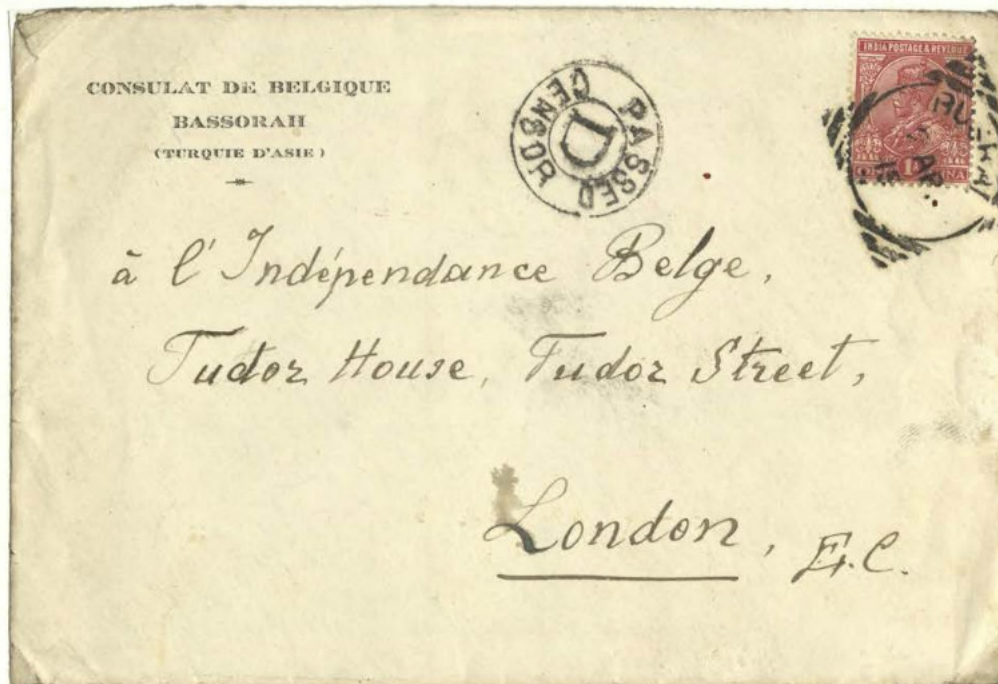 CONSULAT DE BELGIQUE
BASSORAH
(TURQUIE D'ASIE)
PASSED
CENSOR
D
INDIA POSTAGE & REVENUE
1A
AP
15
à l'Indépendance Belge,
Tudor House, Tudor Street,
London, E.C.